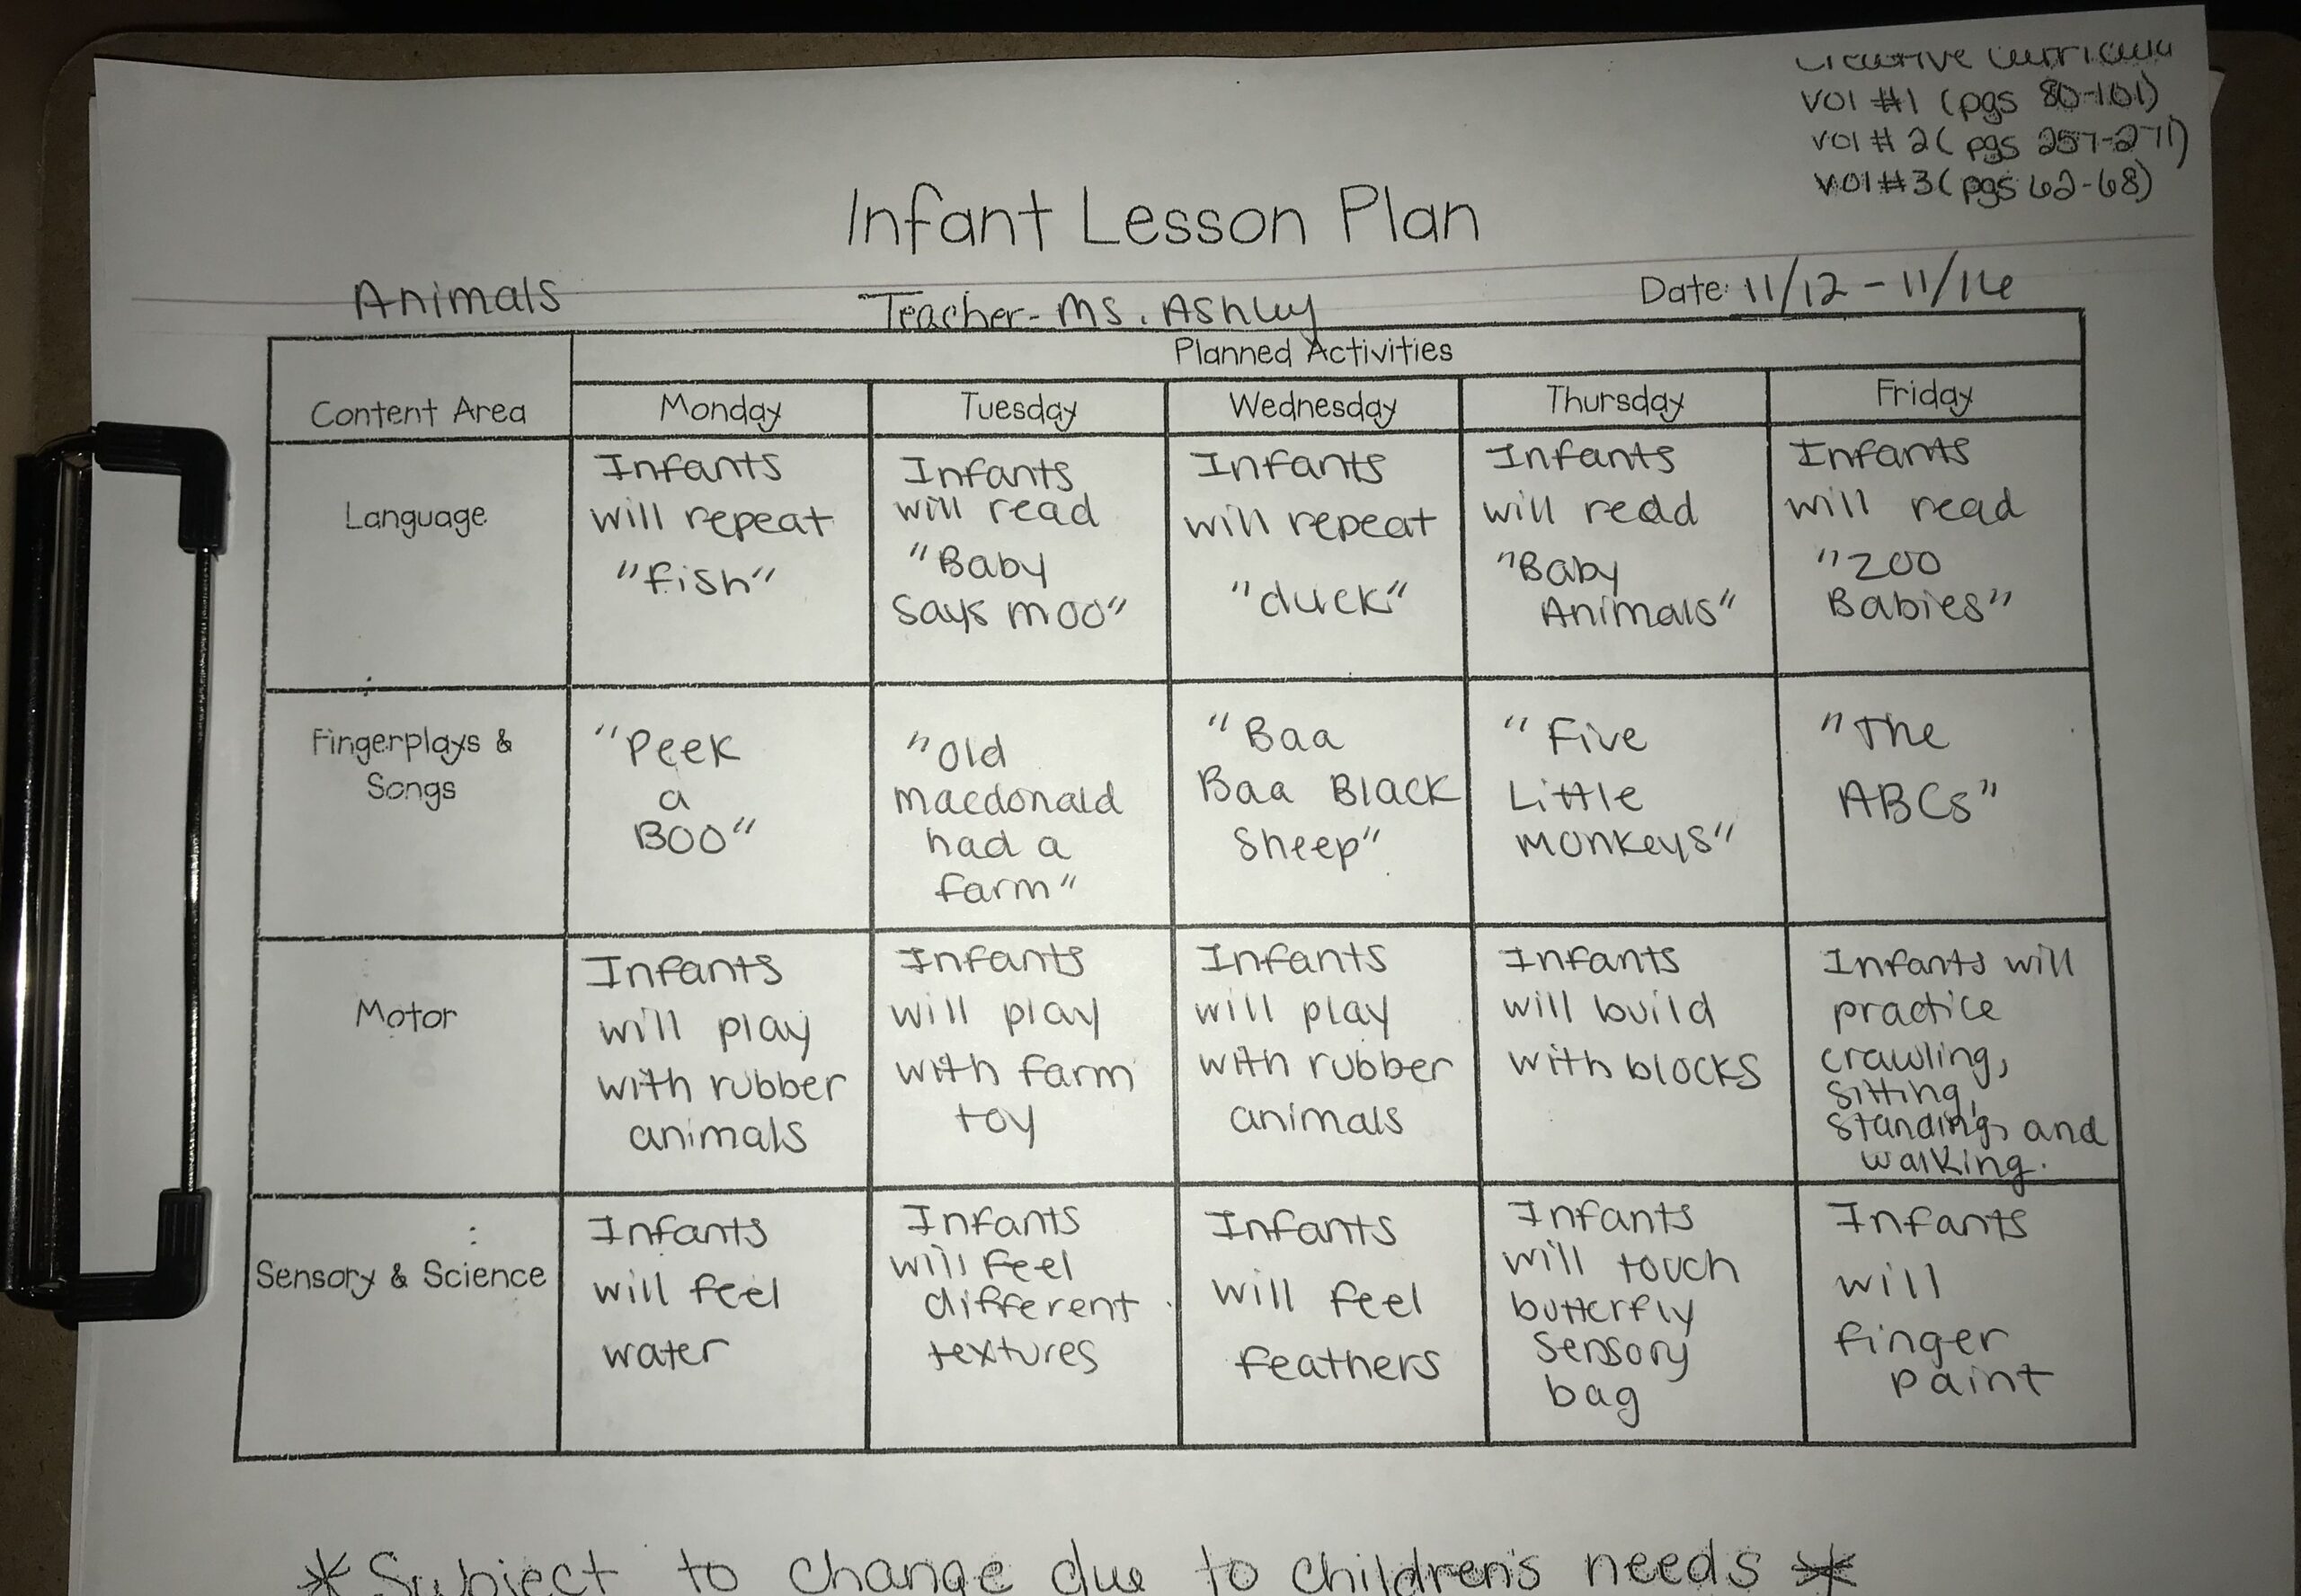 Creative Curriculum
Vol #1 (pgs 80-101)
Vol #2 (pgs 257-271)
Vol #3 (pgs 62-68)
Infant Lesson Plan
Animals
Teacher- Ms. Ashley
Date: 11/12 - 11/16
Planned Activities
Content Area
Monday
Tuesday
Wednesday
Thursday
Friday
Language
Infants
will repeat
"fish"
Infants
will read
"Baby
Says moo"
Infants
will repeat
"duck"
Infants
will read
"Baby
Animals"
Infants
will read
"Zoo
Babies"
Fingerplays &
Songs
"Peek
a
Boo"
"Old
macdonald
had a
farm"
"Baa
Baa Black
Sheep"
"Five
Little
monkeys"
"The
ABCs"
Motor
Infants
will play
with rubber
animals
Infants
will play
with farm
toy
Infants
will play
with rubber
animals
Infants
will build
with blocks
Infants will
practice
crawling,
sitting,
standing, and
walking.
Sensory & Science
Infants
will feel
water
Infants
will feel
different
textures
Infants
will feel
feathers
Infants
will touch
butterfly
sensory
bag
Infants
will
finger
paint
*Subject to change due to children's needs *